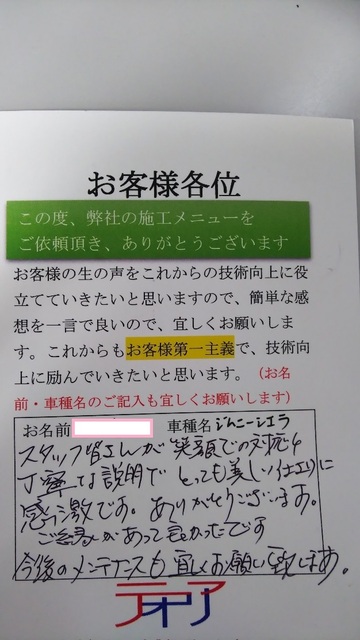 お客様各位
この度、弊社の施工メニューを
ご依頼頂き、ありがとうございます
お客様の生の声をこれからの技術向上に役
立てていきたいと思いますので、簡単な感
想を一言で良いので、宜しくお願いしま
す。これからもお客様第一主義で、技術向
上に励んでいきたいと思います。（お名
前・車種名のご記入も宜しくお願いします）
お名前 車種名 ジムニーシエラ
スタッフ皆さんが笑顔での対応や
丁寧な説明でとっても美しい仕上りに
感激です。ありがとうございます。
ご縁があって良かったです
今後のメンテナスも宜しくお願い致します。